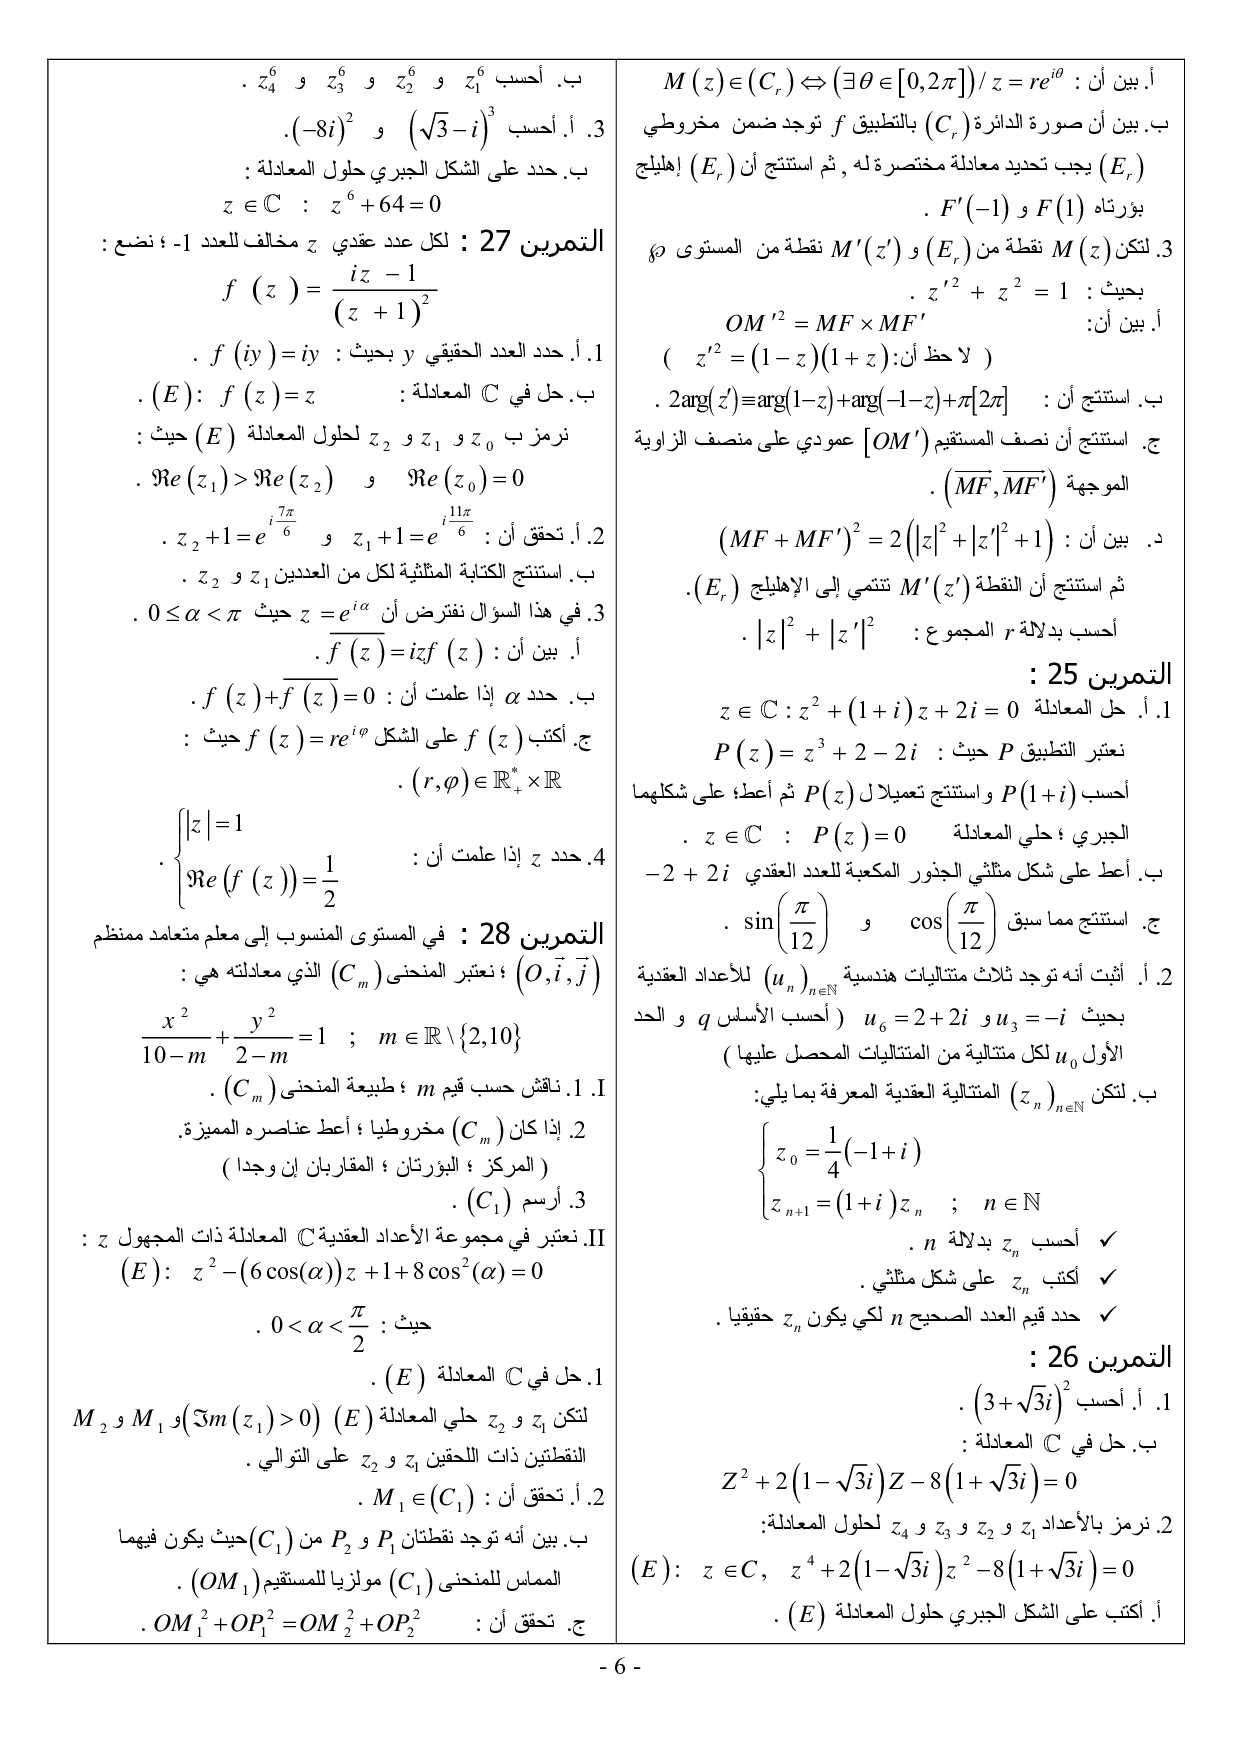 أ. بين أن : M(z)∈(C_r) ⇔ (∃θ∈[0,2π]) / z = re^{iθ}
ب. بين أن صورة الدائرة (C_r) بالتطبيق f توجد ضمن مخروطي
(E_r) يجب تحديد معادلة مختصرة له , ثم استنتج أن (E_r) إهليلج
بؤرتاه F(1) و F'(−1) .
3. لتكن M(z) نقطة من (E_r) و M'(z') نقطة من المستوى ℘
بحيث : z'^2 + z^2 = 1 .
أ. بين أن: OM'^2 = MF × MF'
( لاحظ أن: z'^2 = (1−z)(1+z) )
ب. استنتج أن : 2arg(z') ≡ arg(1−z)+arg(−1−z)+π[2π] .
ج. استنتج أن نصف المستقيم [OM') عمودي على منصف الزاوية
الموجهة (\overrightarrow{MF}, \overrightarrow{MF'}) .
د. بين أن : (MF + MF')^2 = 2(|z|^2 + |z'|^2 + 1)
ثم استنتج أن النقطة M'(z') تنتمي إلى الإهليلج (E_r).
أحسب بدلالة r المجموع : |z|^2 + |z'|^2 .
التمرين 25 :
1. أ. حل المعادلة z∈ℂ : z^2 + (1+i)z + 2i = 0
نعتبر التطبيق P حيث : P(z) = z^3 + 2 − 2i
أحسب P(1+i) و استنتج تعميلا ل P(z) ثم أعط؛ على شكلهما
الجبري ؛ حلي المعادلة z∈ℂ : P(z) = 0 .
ب. أعط على شكل مثلثي الجذور المكعبة للعدد العقدي −2 + 2i
ج. استنتج مما سبق cos(π/12) و sin(π/12) .
2. أ. أثبت أنه توجد ثلاث متتاليات هندسية (u_n)_{n∈ℕ} للأعداد العقدية
بحيث u_3 = −i و u_6 = 2+2i ( أحسب الأساس q و الحد
الأول u_0 لكل متتالية من المتتاليات المحصل عليها )
ب. لتكن (z_n)_{n∈ℕ} المتتالية العقدية المعرفة بما يلي:
z_0 = 1/4(−1+i)
z_{n+1} = (1+i)z_n ; n∈ℕ
✓ أحسب z_n بدلالة n .
✓ أكتب z_n على شكل مثلثي .
✓ حدد قيم العدد الصحيح n لكي يكون z_n حقيقيا .
التمرين 26 :
1. أ. أحسب (3+√3i)^2 .
ب. حل في ℂ المعادلة :
Z^2 + 2(1−√3i)Z − 8(1+√3i) = 0
2. نرمز بالأعداد z_1 و z_2 و z_3 و z_4 لحلول المعادلة:
(E): z∈C, z^4 + 2(1−√3i)z^2 − 8(1+√3i) = 0
أ. أكتب على الشكل الجبري حلول المعادلة (E) .
ب. أحسب z_1^6 و z_2^6 و z_3^6 و z_4^6 .
3. أ. أحسب (√3−i)^3 و (−8i)^2.
ب. حدد على الشكل الجبري حلول المعادلة :
z∈ℂ : z^6 + 64 = 0
التمرين 27 : لكل عدد عقدي z مخالف للعدد 1- ؛ نضع :
f(z) = (iz − 1)/(z + 1)^2
1. أ. حدد العدد الحقيقي y بحيث : f(iy) = iy .
ب. حل في ℂ المعادلة : (E): f(z) = z .
نرمز ب z_0 و z_1 و z_2 لحلول المعادلة (E) حيث :
ℜe(z_0) = 0 و ℜe(z_1) > ℜe(z_2) .
2. أ. تحقق أن : z_1+1 = e^{i11π/6} و z_2+1 = e^{i7π/6} .
ب. استنتج الكتابة المثلثية لكل من العددين z_1 و z_2 .
3. في هذا السؤال نفترض أن z = e^{iα} حيث 0 ≤ α < π .
أ. بين أن : \overline{f(z)} = izf(z) .
ب. حدد α إذا علمت أن : f(z)+\overline{f(z)} = 0 .
ج. أكتب f(z) على الشكل f(z) = re^{iφ} حيث :
(r,φ)∈ℝ_+^*×ℝ .
4. حدد z إذا علمت أن : { |z| = 1
ℜe(f(z)) = 1/2 .
التمرين 28 : في المستوى المنسوب إلى معلم متعامد ممنظم
(O,\vec{i},\vec{j}) ؛ نعتبر المنحنى (C_m) الذي معادلته هي :
x^2/(10−m) + y^2/(2−m) = 1 ; m∈ℝ\{2,10}
I. 1. ناقش حسب قيم m ؛ طبيعة المنحنى (C_m) .
2. إذا كان (C_m) مخروطيا ؛ أعط عناصره المميزة.
( المركز ؛ البؤرتان ؛ المقاربان إن وجدا )
3. أرسم (C_1) .
II. نعتبر في مجموعة الأعداد العقدية ℂ المعادلة ذات المجهول z :
(E): z^2 − (6cos(α))z + 1 + 8cos^2(α) = 0
حيث : 0 < α < π/2 .
1. حل في ℂ المعادلة (E) .
لتكن z_1 و z_2 حلي المعادلة (E) (ℑm(z_1) > 0) و M_1 و M_2
النقطتين ذات اللحقين z_1 و z_2 على التوالي .
2. أ. تحقق أن : M_1∈(C_1) .
ب. بين أنه توجد نقطتان P_1 و P_2 من (C_1) حيث يكون فيهما
المماس للمنحنى (C_1) مولزيا للمستقيم (OM_1) .
ج. تحقق أن : OM_1^2 + OP_1^2 = OM_2^2 + OP_2^2 .
- 6 -